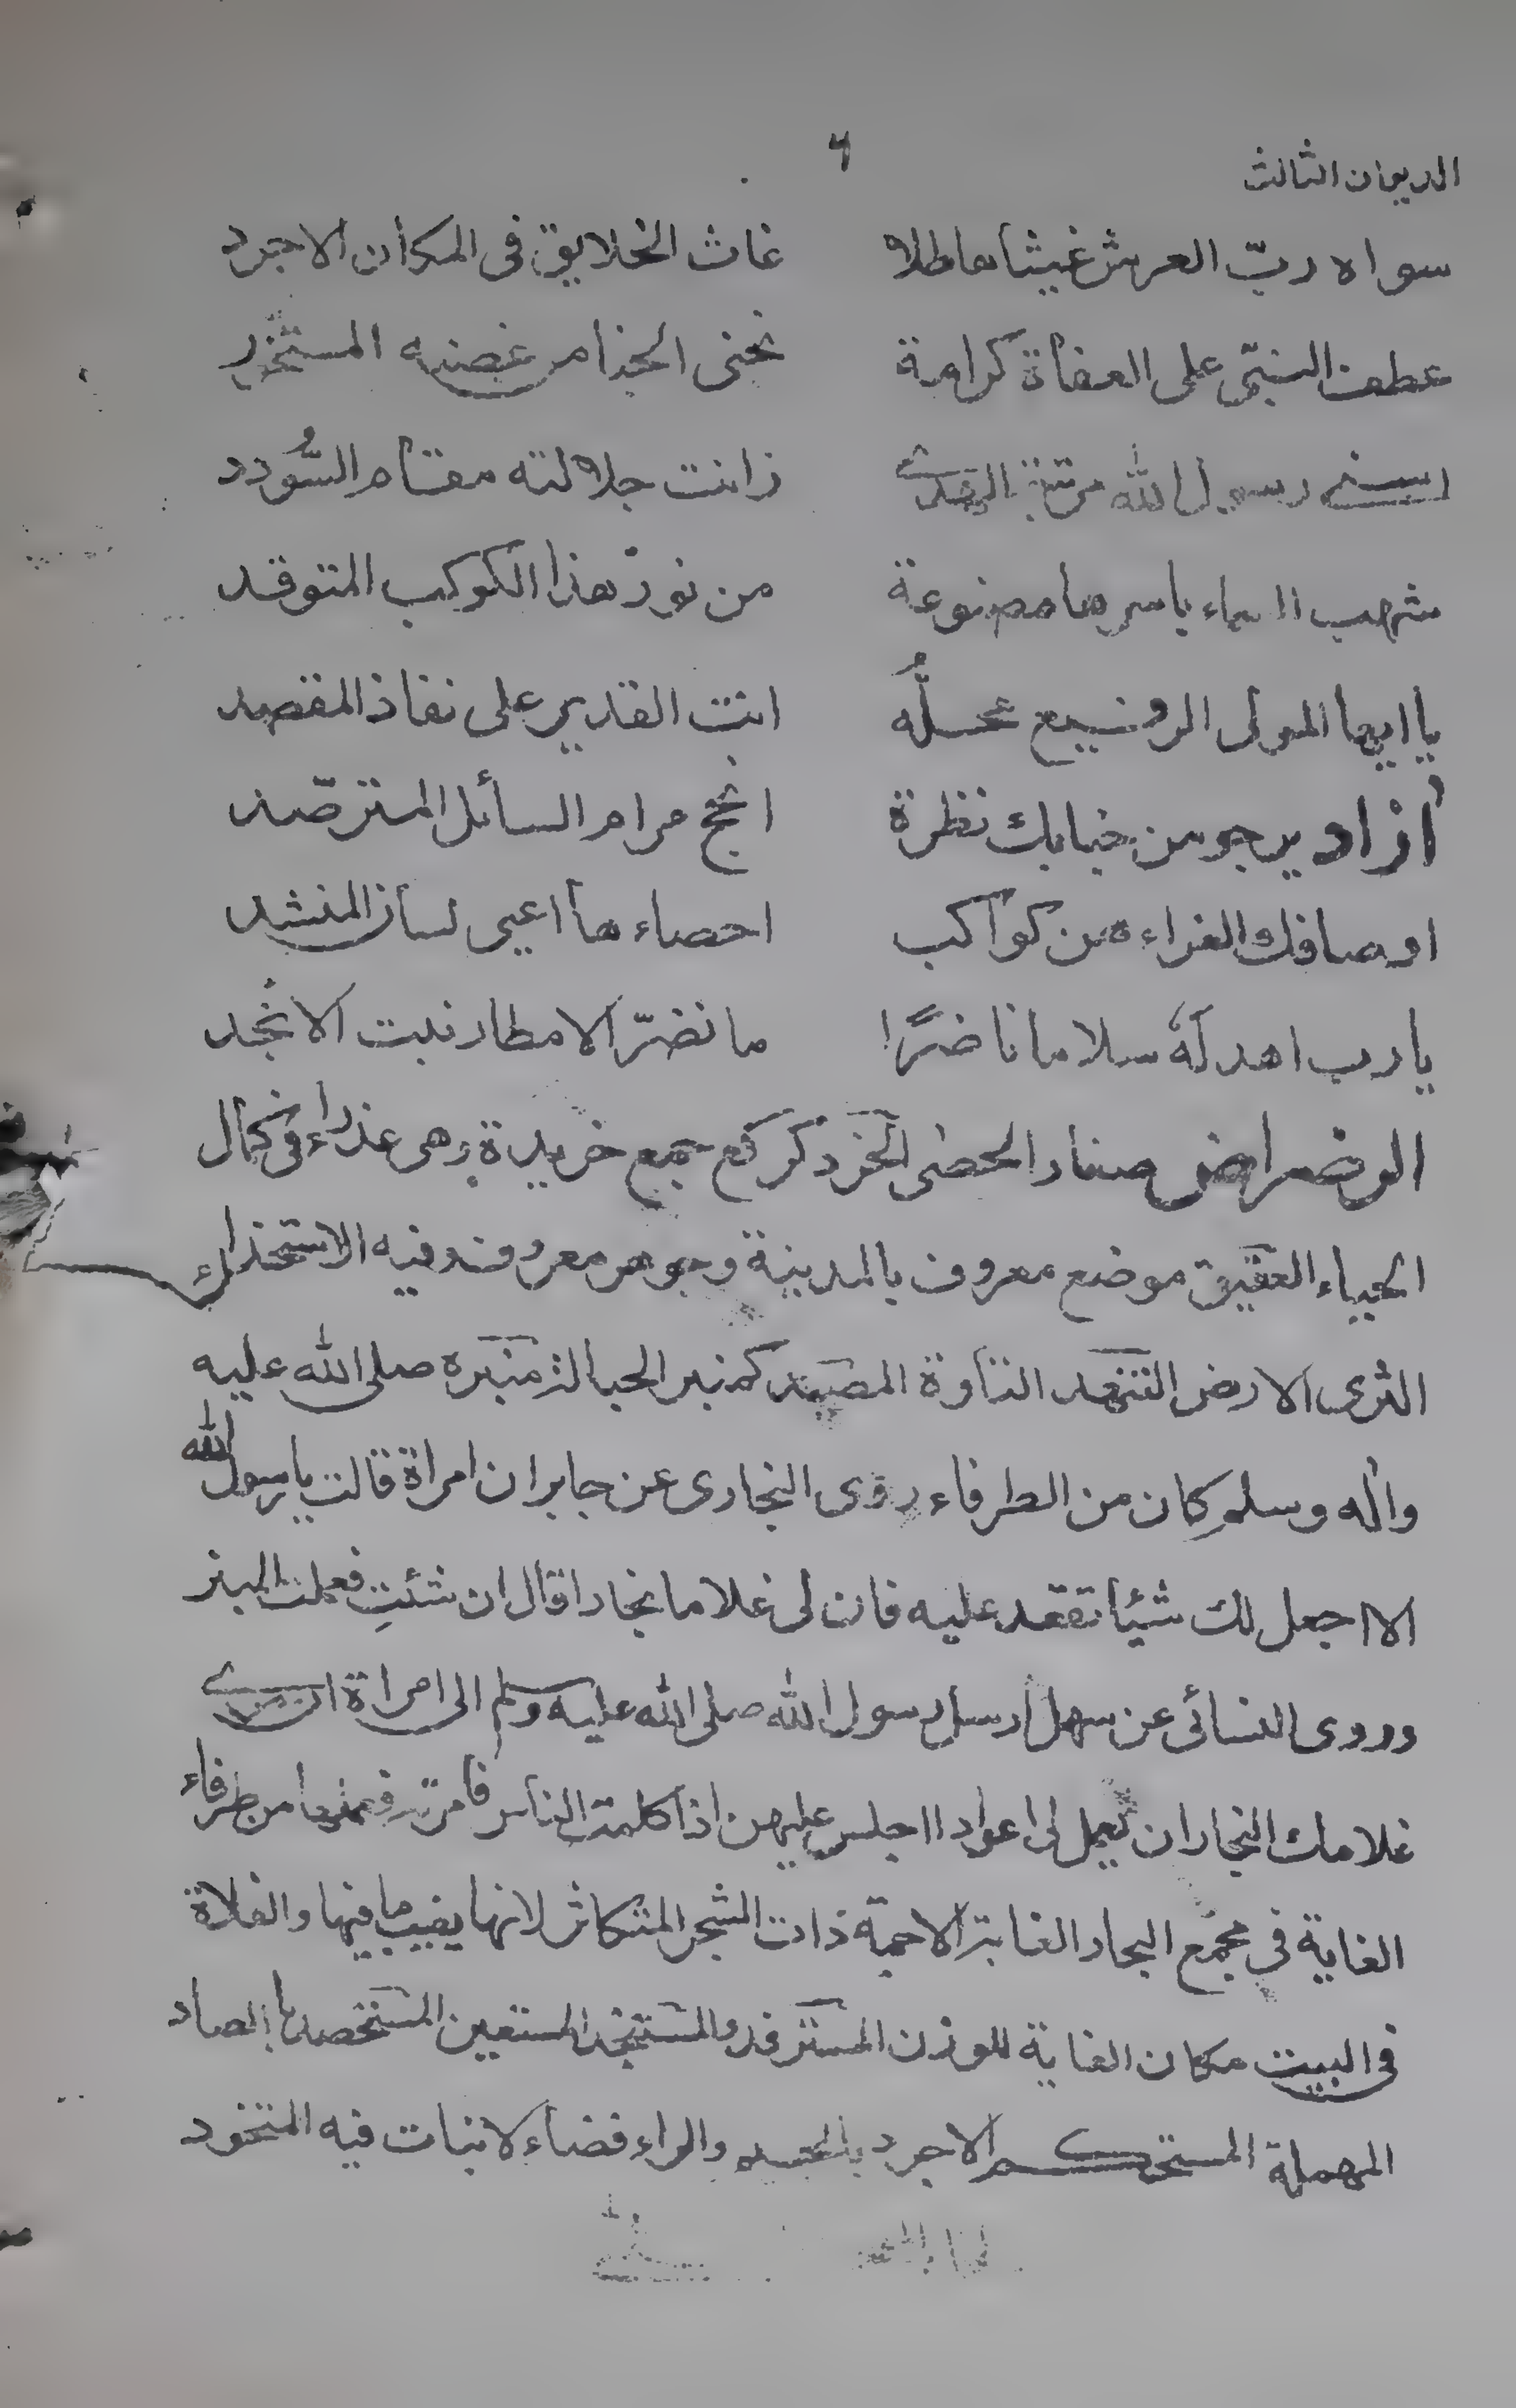 الديوان الثالث
٦
سواه ربّ العرش غيثا هاطلا غاث الخلايق فى المكان الاجرد
عطف النبىّ على العفاة كرامة نجنى الجنا من غصنه
رسول الله زانت جلالته مقام السُّودد
شهب السماء باسرها مصنوعة من نور هذا الكوكب المتوقد
يا ايها المولى الرفيع محلُّه انت القدير على نفاذ المقصد
أزاد يرجو من جنابك نظرة انجح مرام السائل المترصّد
اوصافك الغراء هن كواكب احصاء ها اعيى لسان المنشد
يا رب اهد لَهُ سلاما ناضرًا ما نضرّ الامطار نبت الانجد
الرضراض صغار الحصى الخرد كركع جمع خريدة وهى عذراء فى كمال
الحياء العقيق موضع معروف بالمدينة وجوهر معروف وفيه الاستخدام
الثرى الارض التنهد التاوة المصيد كمنبر الحبالة منبره صلى الله عليه
واله وسلم كان من الطرفاء روى البخارى عن جابر ان امراة قالت يا رسول الله
الا اجعل لك شيئا تقعد عليه فان لى غلاما نجارا قال ان شئتِ فعملت المنبر
وروى النسائى عن سهل ارسل رسول الله صلى الله عليه وسلم الى امراة ان مرى
غلامك النجار ان يعمل لى اعوادا اجلس عليهن اذا كلمت الناس فامرته فعملها من طرفاء
الغابة فى مجمع البحار الغابة الاجمة ذات الشجر المتكاثر لانها يغيب ما فيها والفلاة
فى البيت مكان الغابة للوزن المسترفد والمستنجد المستعين المستحصد بالصاد
المهملة المستحكم الاجرد بالجيم والراء فضاء لا نبات فيه